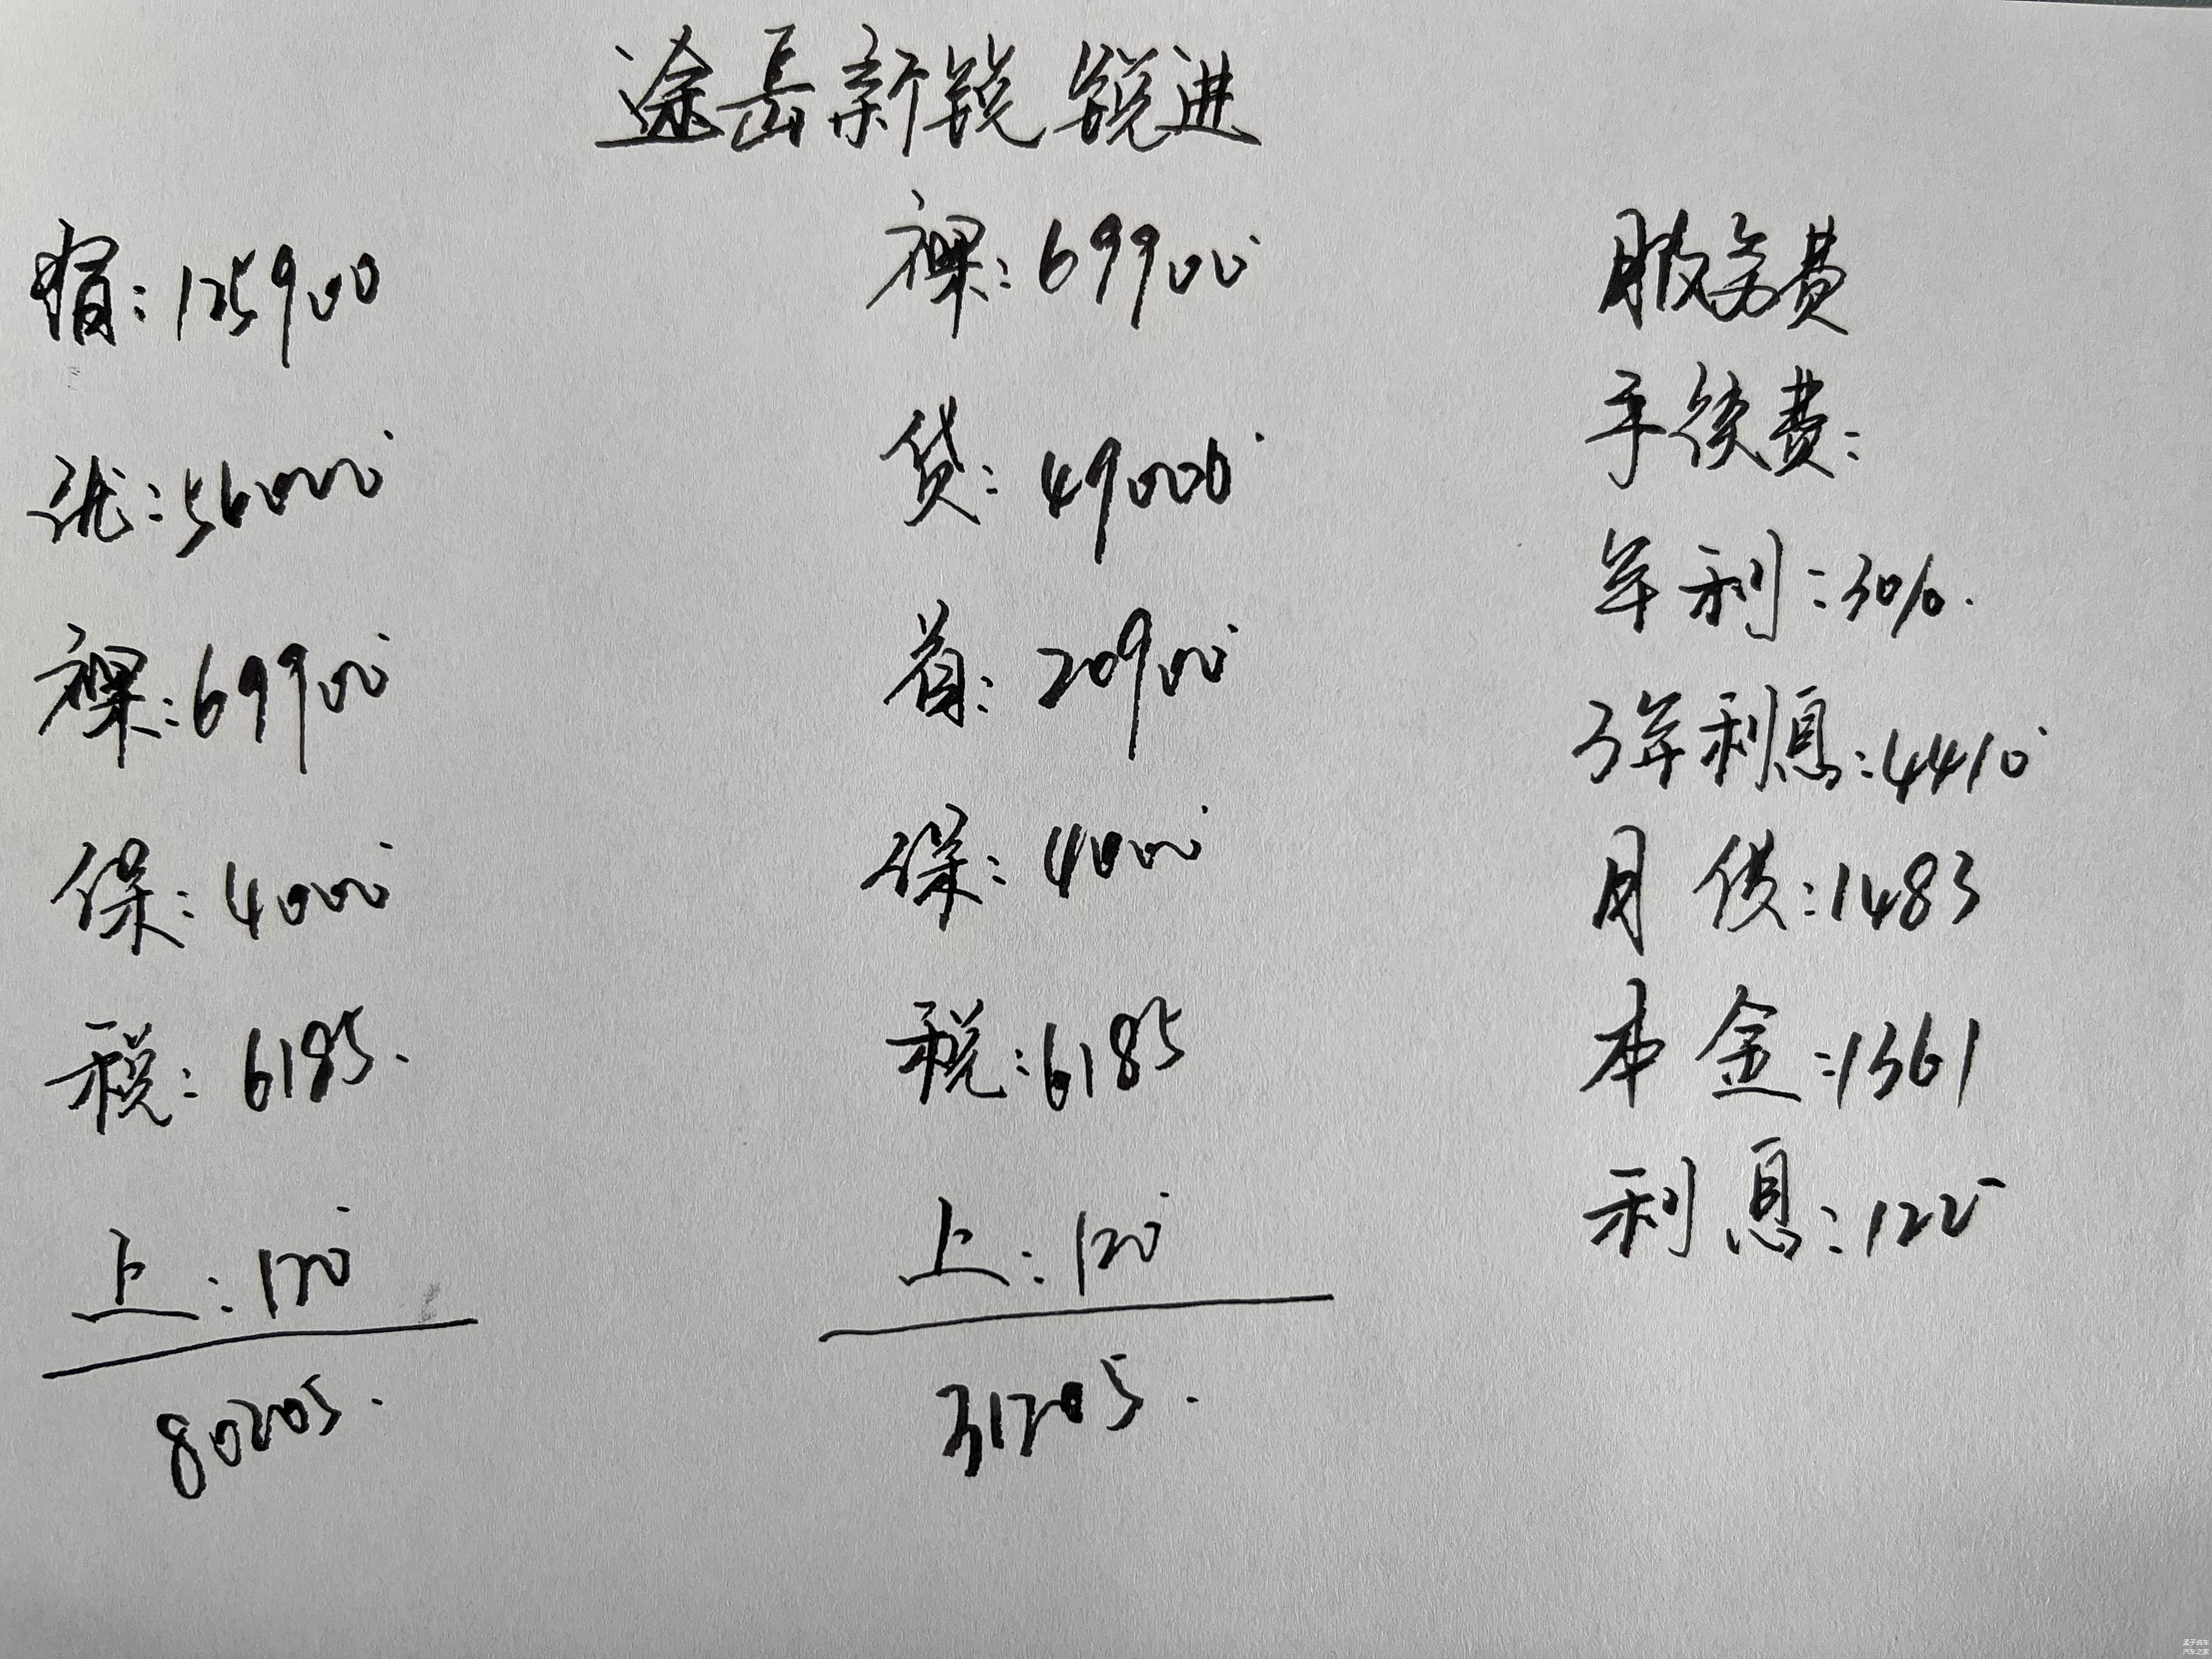 途岳新锐 锐进
指:125900
优:56000
裸:69900
保:4000
税:6185.
上:120
80205.
裸:69900
贷:49000
首:20900
保:4000
税:6185
上:120
31205.
服务费
手续费:
年利:3%.
3年利息:4410
月供:1483
本金:1361
利息:122
孟子说车
汽车之家